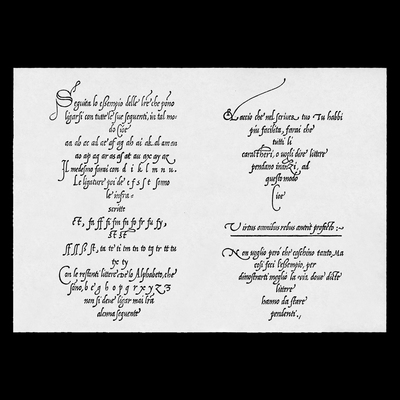 Seguita lo essempio delle lre che pono
ligarsi con tutte le sue sequenti, in tal mo-
do cioe
aa ab ac ad ae af ag ah ai ak al am an
ao ap aq ar as af at au ax ay az
Il medesmo farai con d i k l m n u.
Le ligature poi de' c f s ſ t sono
le infra-
scritte
et, fa ff fi fm fn fo fr fu fy,
ſt st
ſf ſſ ſt, ta te ti tm tn to tq tr tt tu
tx ty
Con le restanti littere de lo Alphabeto, che
sono, b e g h o p q r x y z ʒ
non si deve ligar mai lra
alcuna sequente
Et accio che nel scrivere tuo Tu habbi
piu facilita, farai che
tutti li
caratheri, o vogli dire littere
pendano inanzi, ad
questo modo
Cioe
Virtus omnibus rebus anteit profecto:~
Non voglio pero che caschino tanto, Ma
cosi feci l'essempio, per
dimostrarti meglio la via dove ditte
littere
hanno da stare
pendenti.,